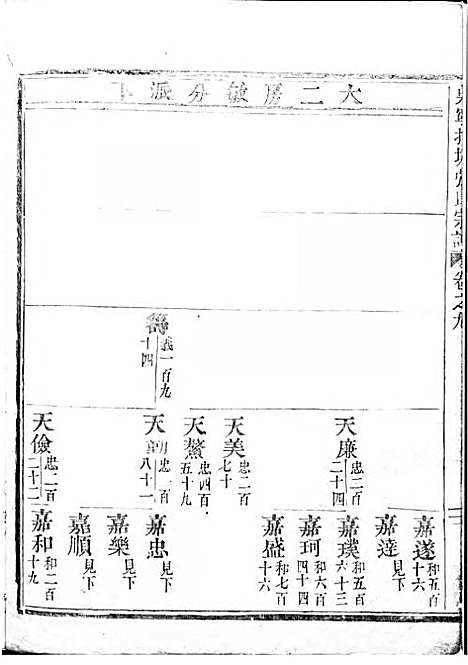 大二房敏分派下
宗譜
卷之九
嘉遂 和五百十六
嘉達 見下
天廉 忠二百二十四
嘉璞 和五百六十三
嘉珂 和六百四十四
嘉盛 和七百十六
天美 忠二百七十
天鰲 忠四百五十九
義一百九十四
天 忠一百八十一
嘉忠 見下
嘉樂 見下
嘉順 見下
天儉 忠二百二十二
嘉和 和二百十九